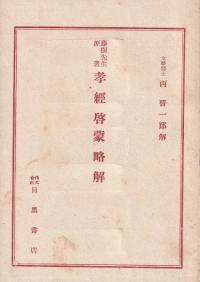 文學博士 西晉一郎解
藤樹先生
原著
孝經啓蒙略解
株式
會社
目黑書店